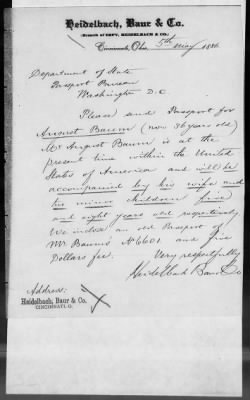 Heidelbach, Baur & Co.
(Branch of ESPY, HEIDELBACH & CO.)
Cincinnati, Ohio, 5th May 1886
Department of State
Passport Bureau
Washington D.C
Please send Passport for
August Baum (now 36 years old)
Mr August Baum is at the
present time within the United
States of America and will be
accompanied by his wife and
his minor children five
and eight years old respectively
We inclose an old Passport of
Mr Baums No 6601 and five
Dollars fee.
Very respectfully
Heidelbach Baur & Co
Address:
Heidelbach, Baur & Co.
CINCINNATI, O.